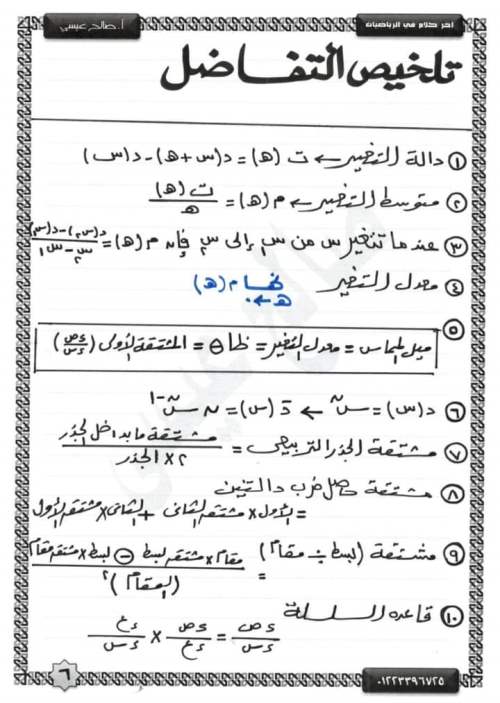 آخر كلام في الرياضيات
أ. صالح عيسى
تلخيص التفاضل
① دالة التغير ← ت (ھ) = د(س + ھ) - د(س)
② متوسط التغير ← م (ھ) = ت (ھ) / ھ
③ عندما تتغير س من س١ إلى س٢ فإن م (ھ) = د(س٢) - د(س١) / س٢ - س١
④ معدل التغير نهـا م (ھ) ھ←٠
⑤ ميل المماس = معدل التغير = ظا θ = المشتقة الأولى (ءص/ءس)
⑥ د(س) = س^ن ← دَ (س) = ن س^ن-١
⑦ مشتقة الجذر التربيعى = مشتقة ما بداخل الجذر / ٢ × الجذر
⑧ مشتقة حاصل ضرب دالتين
= الأول × مشتقة الثانى + الثانى × مشتقة الأول
⑨ مشتقة (بسط ÷ مقام)
= مقام × مشتقة بسط - بسط × مشتقة مقام / (المقام)٢
⑩ قاعدة السلسلة
ءص/ءس = ءص/ءع × ءع/ءس
٦
٠١٢٢٣٣٩٦٧٢٥